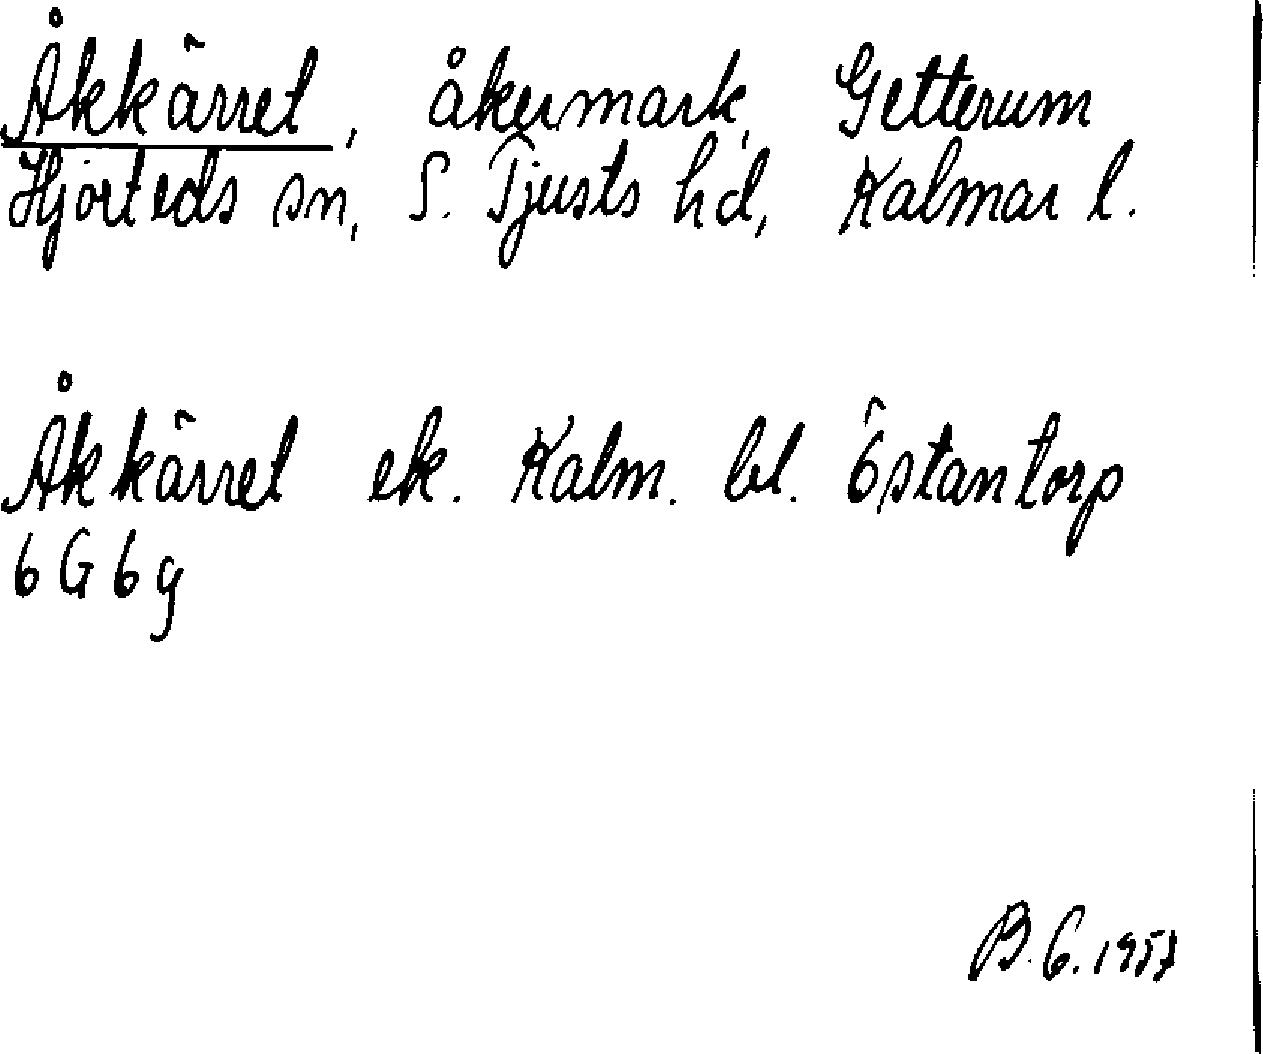 Åkkärret, åkermark, Getterum
Hjorteds sn, S. Tjusts hd, Kalmar l.
Åkkärret ek. Kalm. bl. Östantorp
6 G 6 g
B. G. 1957